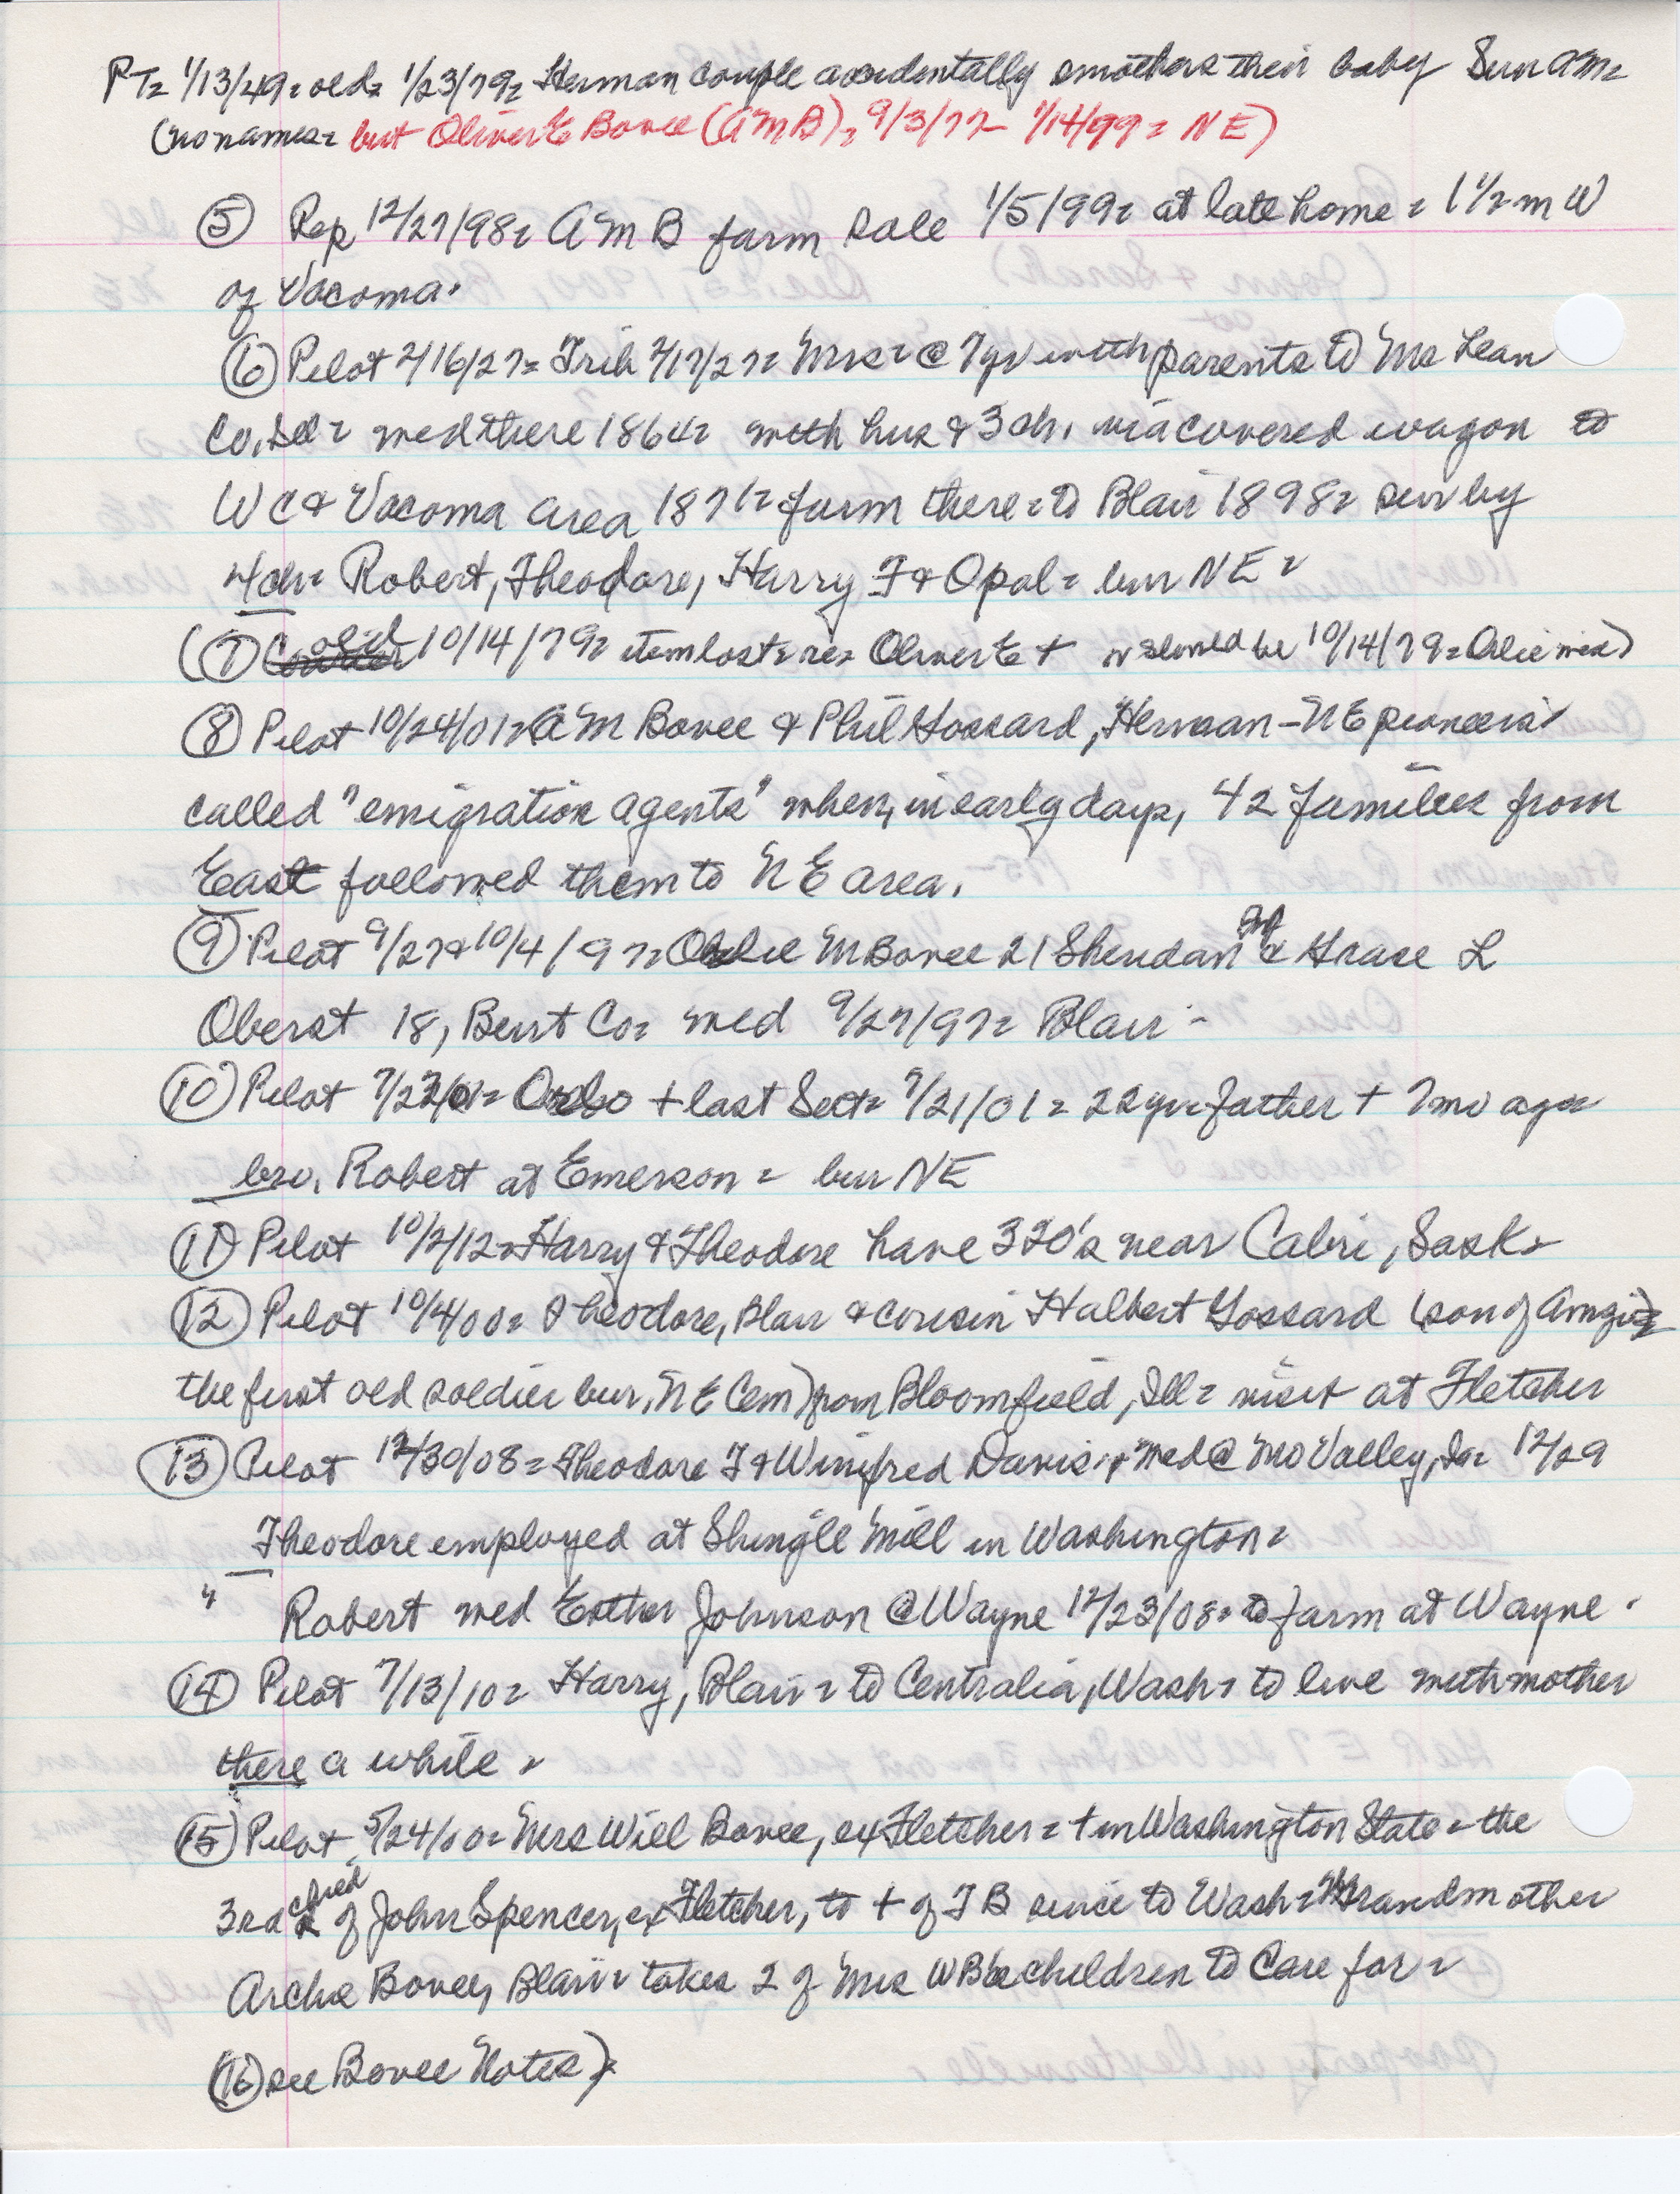 PT= 1/13/49= old= 1/23/79= Herman couple accidentally smothers their baby Sun am=
(no names= but Oliver E Bovee (AMB)= 9/3/77- 1/14/99= NE)
(5) Rep 12/27/98= AMB farm sale 1/5/99= at late home= 1 1/2 m W
of Vacoma.
(6) Pilot 2/16/27= Trib 2/17/27= Mrs= @ 7yr with parents to Mc Lean
Co, Ill= med there 1864= with hus & 3 ch, via covered wagon to
WC & Vacoma area 1871= farm there= to Blair 1898= surv by
4 ch= Robert, Theodore, Harry F & Opal= bur NE=
(7) 10/14/79= item lost= re= Oliver E + should be 10/14/79=
(8) Pilot 10/24/01= AM Bovee & Phil Gossard, Herman-NE pioneers
called "emigration agents" when, in early days, 42 families from
East followed them to NE area.
(9) Pilot 9/27 & 10/4/97= M Bovee 21 Sheridan & Grace L
Oberst 18, Burt Co= med 9/27/97= Blair-
(10) Pilot + last Sat= 9/21/01= 22 yr= father + 7 mo ago=
bro, Robert at Emerson= bur NE
(11) Pilot 10/2/12= Harry & Theodore have 320's near Cabri, Sask=
(12) Pilot 10/4/00= Theodore, Blair & cousin Halbert Gossard (son of Amzi=
the first old soldier bur, NE Cem) from Bloomfield, Ill= visit at Fletcher
(13) Pilot 12/30/08= Theodore F & Winifred Davis, med @ Mo Valley, Ia= 12/29
Theodore employed at Shingle Mill in Washington=
" Robert med Esther Johnson @ Wayne 12/23/08= to farm at Wayne.
(14) Pilot 7/13/10= Harry, Blair= to Centralia, Wash= to live with mother
there a while=
(15) Pilot 5/24/00= Mrs Will Bovee, ex Fletcher= + in Washington State= the
3rd child of John Spencer, ex Fletcher, to + of TB since to Wash= Grandmother
Bovee, Blair= takes 2 of Mrs WB's children to care for=
(16) see Bovee Notes)=